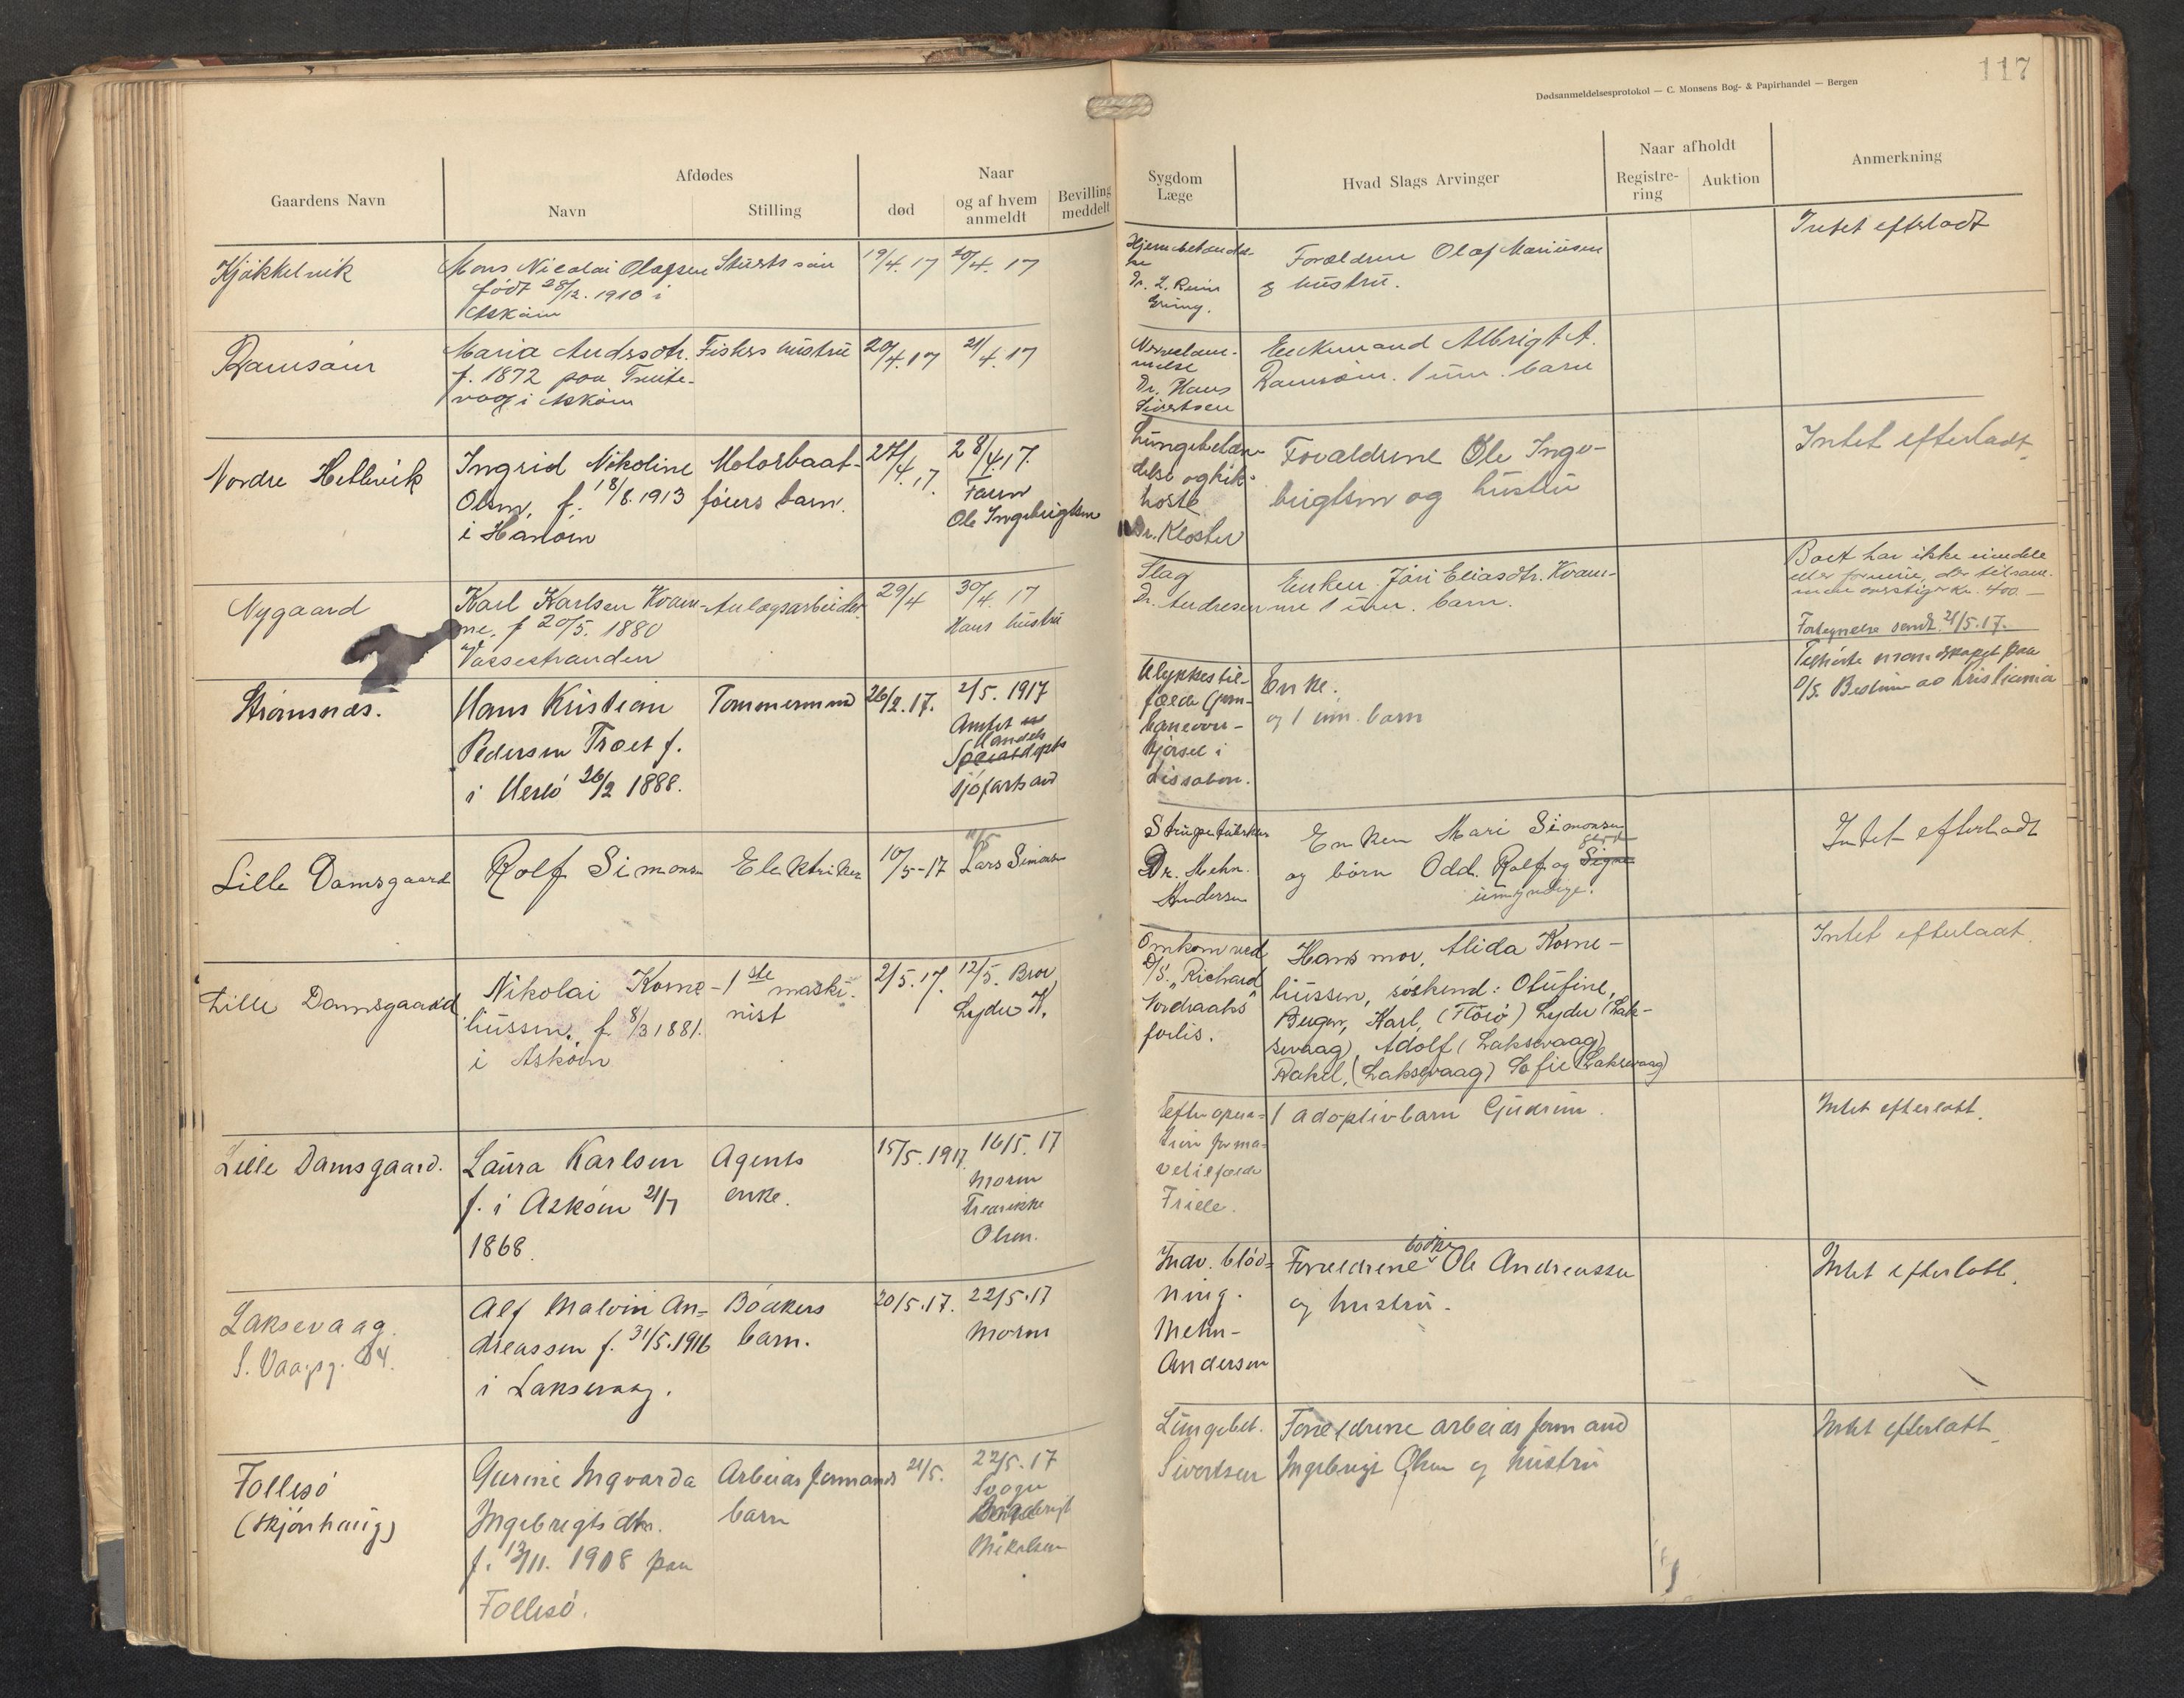 117
Dødsanmeldelsesprotokol — C. Monsens Bog- & Papirhandel — Bergen
Gaardens Navn
Afdødes
Navn
Stilling
død
Naar
og af hvem
anmeldt
Bevilling
meddelt
Sygdom
Læge
Hvad Slags Arvinger
Naar afholdt
Registre-
ring
Auktion
Anmerkning
Kjøkkelvik
Mons Nicolai Olafsen
født 28/12. 1910 i
Askøin
søn
19/4. 17
20/4. 17
Dr.
Forældrene Olaf Mariusen
og hustru.
Intet efterladt
Ramsøin
Maria Andrsdtr.
f. 1872 paa
i Askøin
Fiskers hustru
20/4. 17
21/4. 17
Dr. Hans
Sivertsen
Enkemand Albrigt A.
Ramsøin. 1 um. barn
Nordre Hetlevik
Ingrid Nikoline
Olsen, f. 18/8. 1913
i Hanøin
Motorbaat-
førers barn.
27/4. 17.
28/4. 17.
Faren
Ole Ingebrigtsen
Lungebetæn-
delse og kik-
hoste
Dr. Kloster
Forældrene Ole Inge-
brigtsen og hustru
Intet efterladt.
Nygaard
Karl Karlsen Kvam-
me, f 20/5. 1880
Vossestranden
Anlægsarbeider
29/4
30/4. 17
Hans hustru
Slag
Dr. Andresen
Enken Jóri Eliasdtr. Kvam-
me 1 um. barn.
Boet har ikke eiendele
eller formue, der tilsam-
men overstiger kr. 400 —
Fortegnelse sendt 21/5. 17.
Strømsnæs.
Hans Kristian
Pedersen Træet f.
i Herlø 26/2 1888.
Tømmermand
26/2. 17.
2/5. 1917
Handels
sjøfarts
Ulykkestil-
fælde (jern-
baneover-
kjørsel i
Lissabon.
Enke.
og 1 um. barn
Tilhørte mandskapet paa
D/S. av Kristiania
Lille Damsgaard
Rolf Simonsen
Elektriker
10/5-17
11/5
Lars Simonsen
Strupetuberkulose
Dr. Mehn.
Andersen
Enken Mari Simonsen
og børn Odd. Rolf og Signe
umyndige.
Intet efterladt
Lille Damsgaard
Nikolai Korne-
liussen, f. 8/3 1881.
i Askøin
1ste maski-
nist
2/5. 17.
12/5. Bror
Lyder K.
Omkom ved
D/S. "Richard
Nordraaks"
forlis.
Hans mor, Alida Korne-
liussen, søskend: Olufine,
Bergen, Karl, (Florø) Lyder (Lak-
sevaag), Adolf (Laksevaag)
Rakel, (Laksevaag) Efie (Laksevaag)
Intet efterladt.
Lille Damsgaard.
Laura Karlsen
f. i Askøin 21/7
1868.
Agents
enke.
15/5. 1917.
16/5. 17
Moren
Fredrikke
Olsen.
Efter opera-
tion for ma-
vetilfælde
Friele.
1 adoptivbarn Gudrun.
Intet efterlatt.
Laksevaag.
S. Vaagsg. 84.
Alf Malvin An-
dreassen f. 31/5. 1916
i Laksevaag.
Bødkers
barn.
20/5. 17.
22/5. 17
Moren
Indv. blød-
ning.
Mehn-
Andersen
Forældrene bødker Ole Andreassen
og hustru.
Intet efterlatt.
Follesø
(Skjønhaug)
Gurine Ingvarda
Ingebrigtsdtr.
f. 13/11. 1908 paa
Follesø.
Arbeidsformands
barn
21/5.
22/5. 17
Svoger
Mikalsen
Lungebet.
Sivertsen
Forældrene arbeidsformand
Ingebrigt Olsen og hustru
Intet efterlatt.